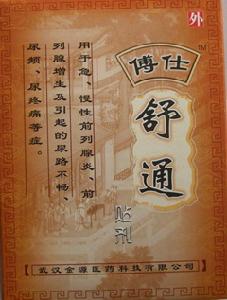 外
傅仕 TM
舒通
贴剂
用于急、慢性前列腺炎、前
列腺增生及引起的尿路不畅、
尿频、尿疼痛等症。
武汉金源医药科技有限公司